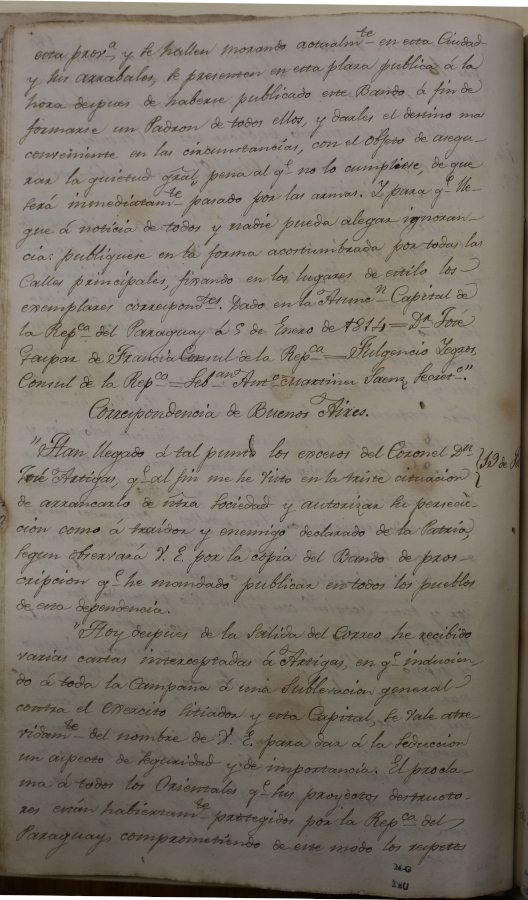 esta prov.ª, y se hallen morando actualm.te en esta Ciudad
y sus arrabales, se presenten en esta plaza publica á la
hora despues de haberse publicado este Bando á fin de
formarse un Padron de todos ellos, y darles el destino mas
conveniente en las circunstancias, con el objeto de asegu-
rar la quietud gral, pena al q.e no lo cumpliese, de que
será inmediatam.te pasado por las armas. Y para q.e lle-
gue á noticia de todos y nadie pueda alegar ignoran-
cia: publiquese en la forma acostumbrada por todas las
Calles principales, fixando en los lugares de estilo los
exemplares correspon.tes. Dado en la Asunc.n Capital de
la Rep.ca del Paraguay á 5 de Enero de 1814 = D.r José
Gaspar de Francia Consul de la Rep.ca = Fulgencio Yegros
Consul de la Rep.ca = Seb.an Ant.o Martinez Saenz Secret.o"
Correspondencia de Buenos Aires.
"Han llegado á tal punto los excesos del Coronel D.n
José Artigas, q.e al fin me he visto en la triste situacion
de arrancarlo de ntra Sociedad y autorizar su persecu-
cion como á traidor y enemigo declarado de la Patria,
segun observará V. E. por la copia del Bando de pros-
cripcion q.e he mandado publicar en todos los pueblos
de esta dependencia.
"Hoy despues de la Salida del Correo he recibido
varias cartas interceptadas á Artigas, en q.e inducien-
do á toda la Campaña á una Sublevacion general
contra el Exercito sitiador y esta Capital, se vale atre-
vidam.te del nombre de V. E. para dar á la seduccion
un aspecto de seguridad y de importancia. El procla-
ma á todos los Orientales q.e sus proyectos destructo-
res están habiertam.te protegidos por la Rep.ca del
Paraguay, comprometiendo de este modo los respetos